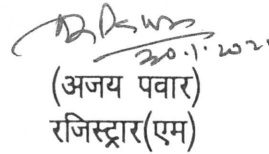 30.1.202
(अजय पवार)
रजिस्ट्रार(एम)